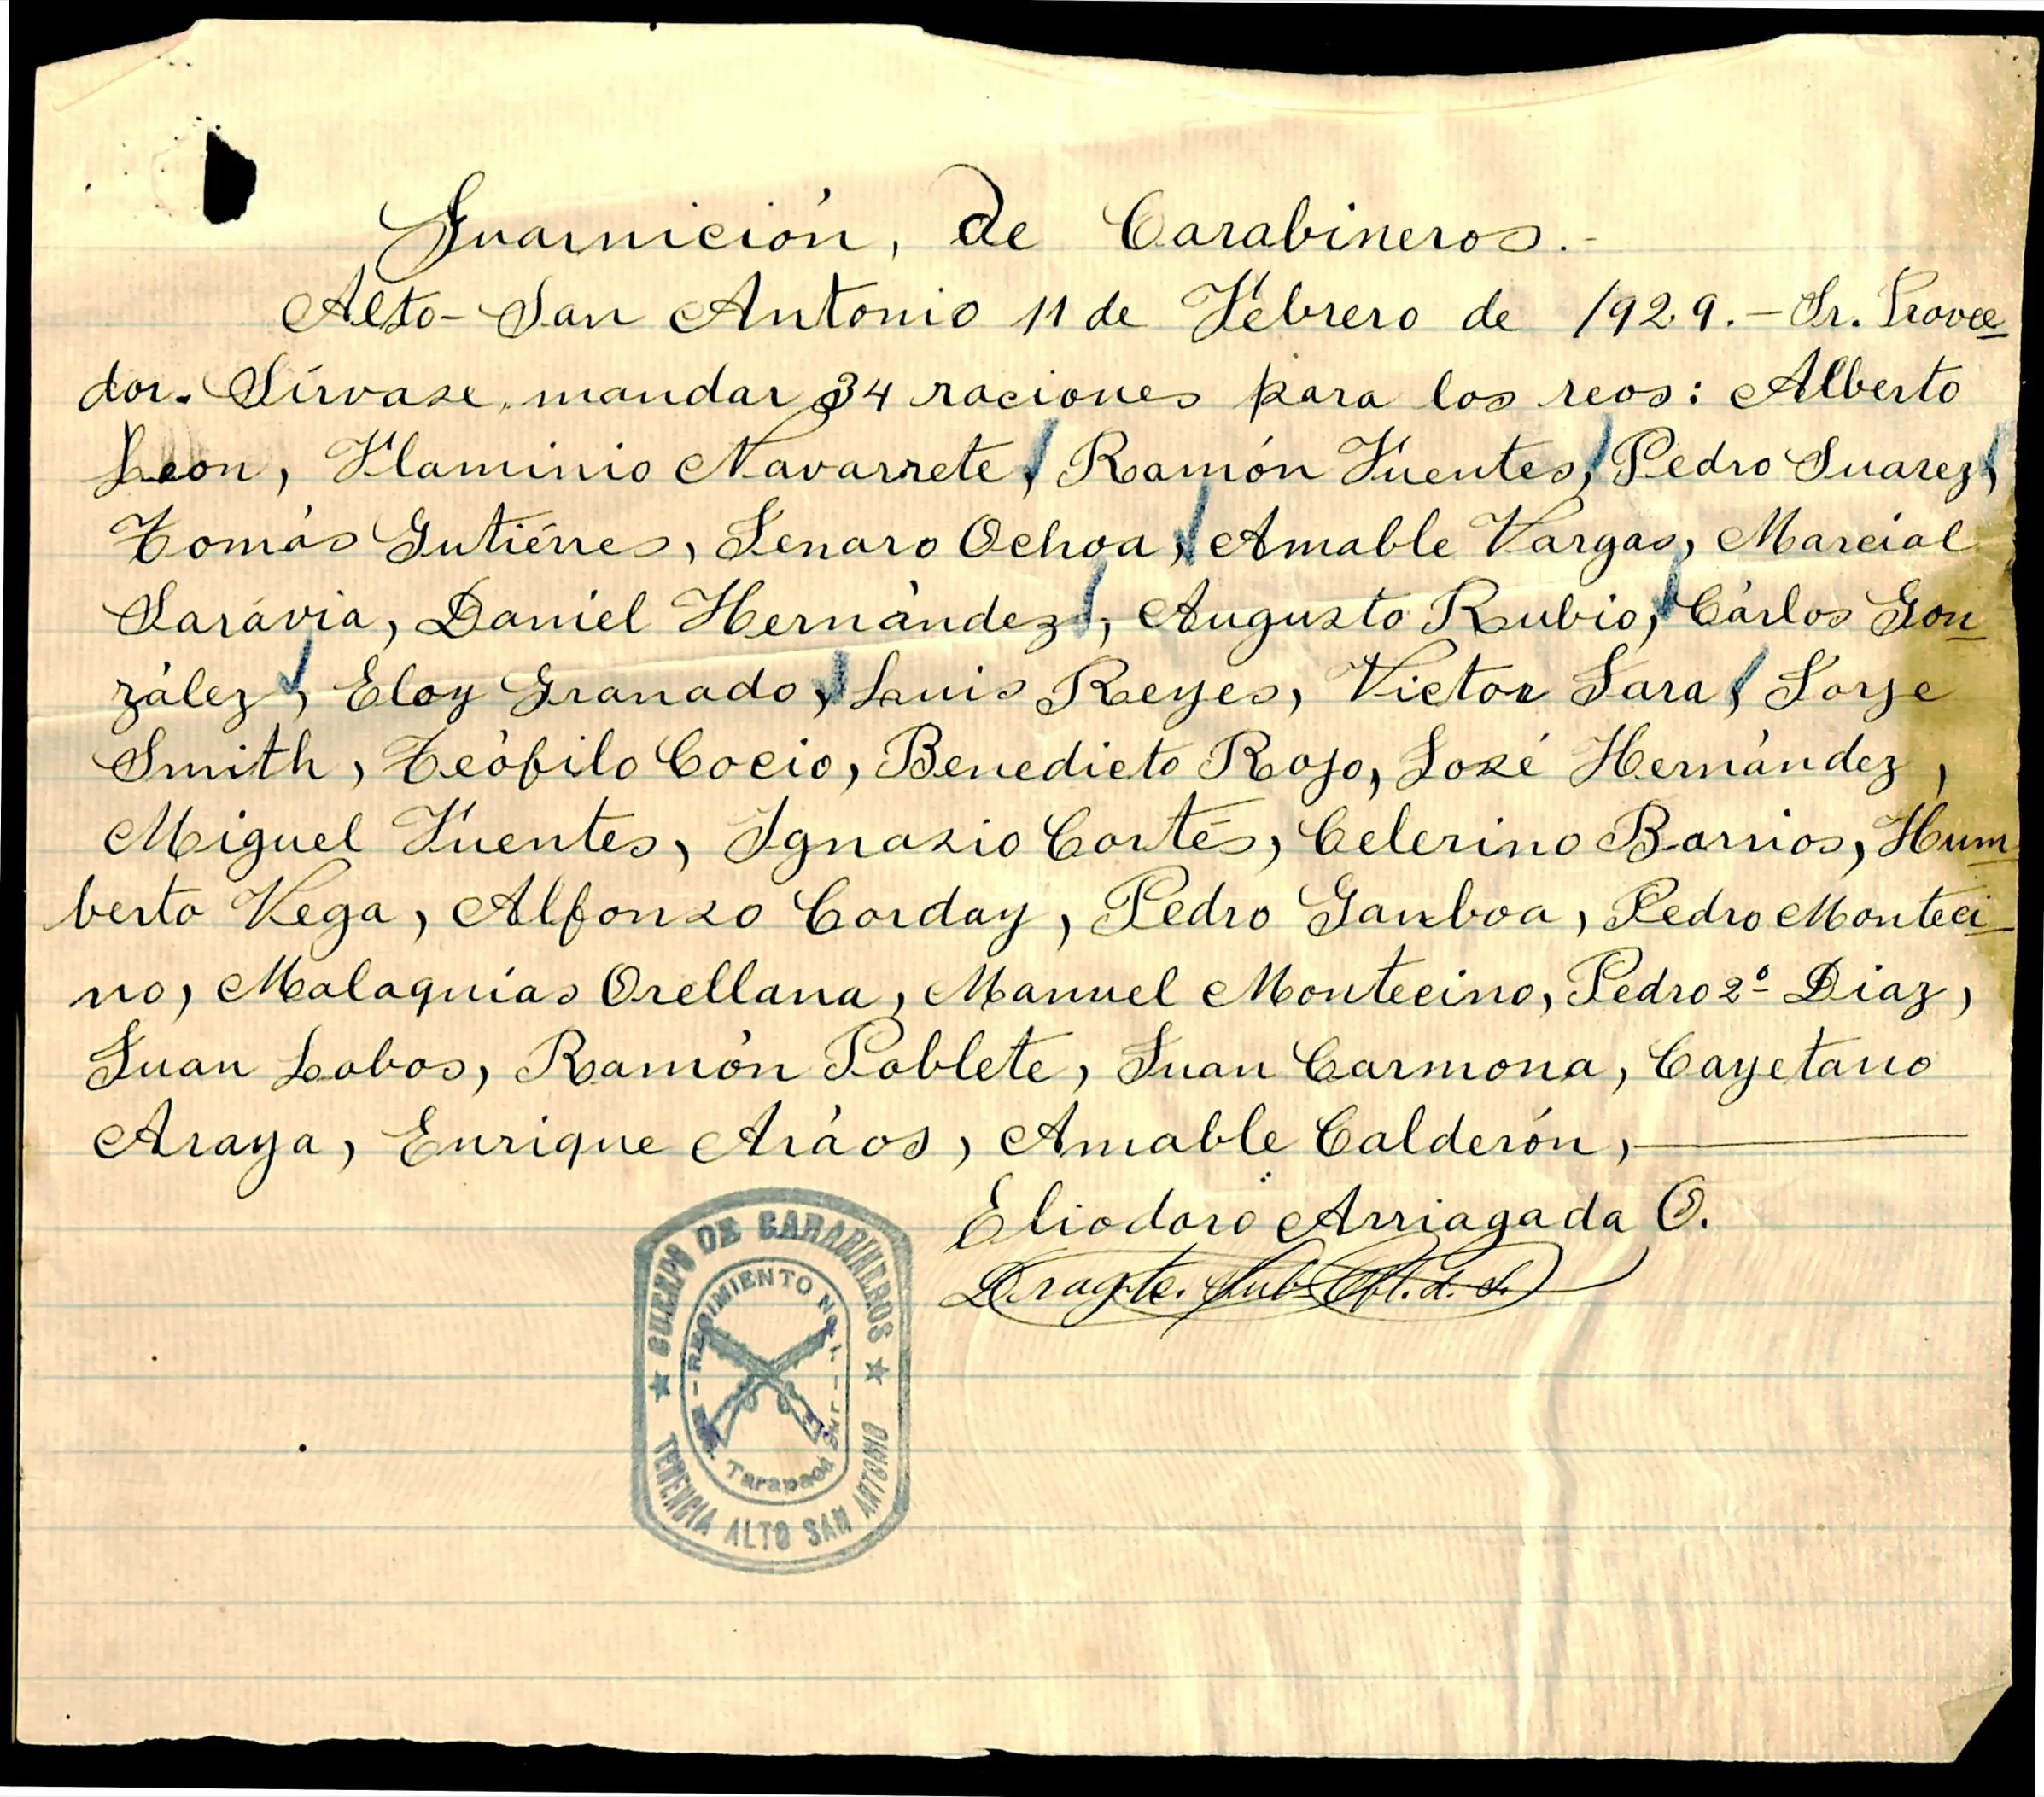 Guarnición, de Carabineros.-
Alto-San Antonio 11 de Febrero de 1929.- Sr. Provee
dor. Sírvase, mandar 34 raciones para los reos: Alberto
Leon, Flaminio Navarrete, Ramón Fuentes, Pedro Suarez,
Tomás Gutiérres, Jenaro Ochoa, Amable Vargas, Marcial
Sarávia, Daniel Hernández, Augusto Rubio, Cárlos Gon
zález, Eloy Granado, Luis Reyes, Victor Jara, Jorje
Smith, Teófilo Cocio, Benedicto Rojo, José Hernández,
Miguel Fuentes, Ignasio Cortés, Celerino Barrios, Hum
berto Vega, Alfonso Corday, Pedro Ganboa, Pedro Monteci
no, Malaquías Orellana, Manuel Montecino, Pedro 2º Diaz,
Juan Lobos, Ramón Poblete, Juan Carmona, Cayetano
Araya, Enrique Aráos, Amable Calderón,
Eliodoro Arriagada O.
Dragte. Sub
CUERPO DE CARABINEROS
REGIMIENTO No. 1
Tarapacá Sur
TENENCIA ALTO SAN ANTONIO